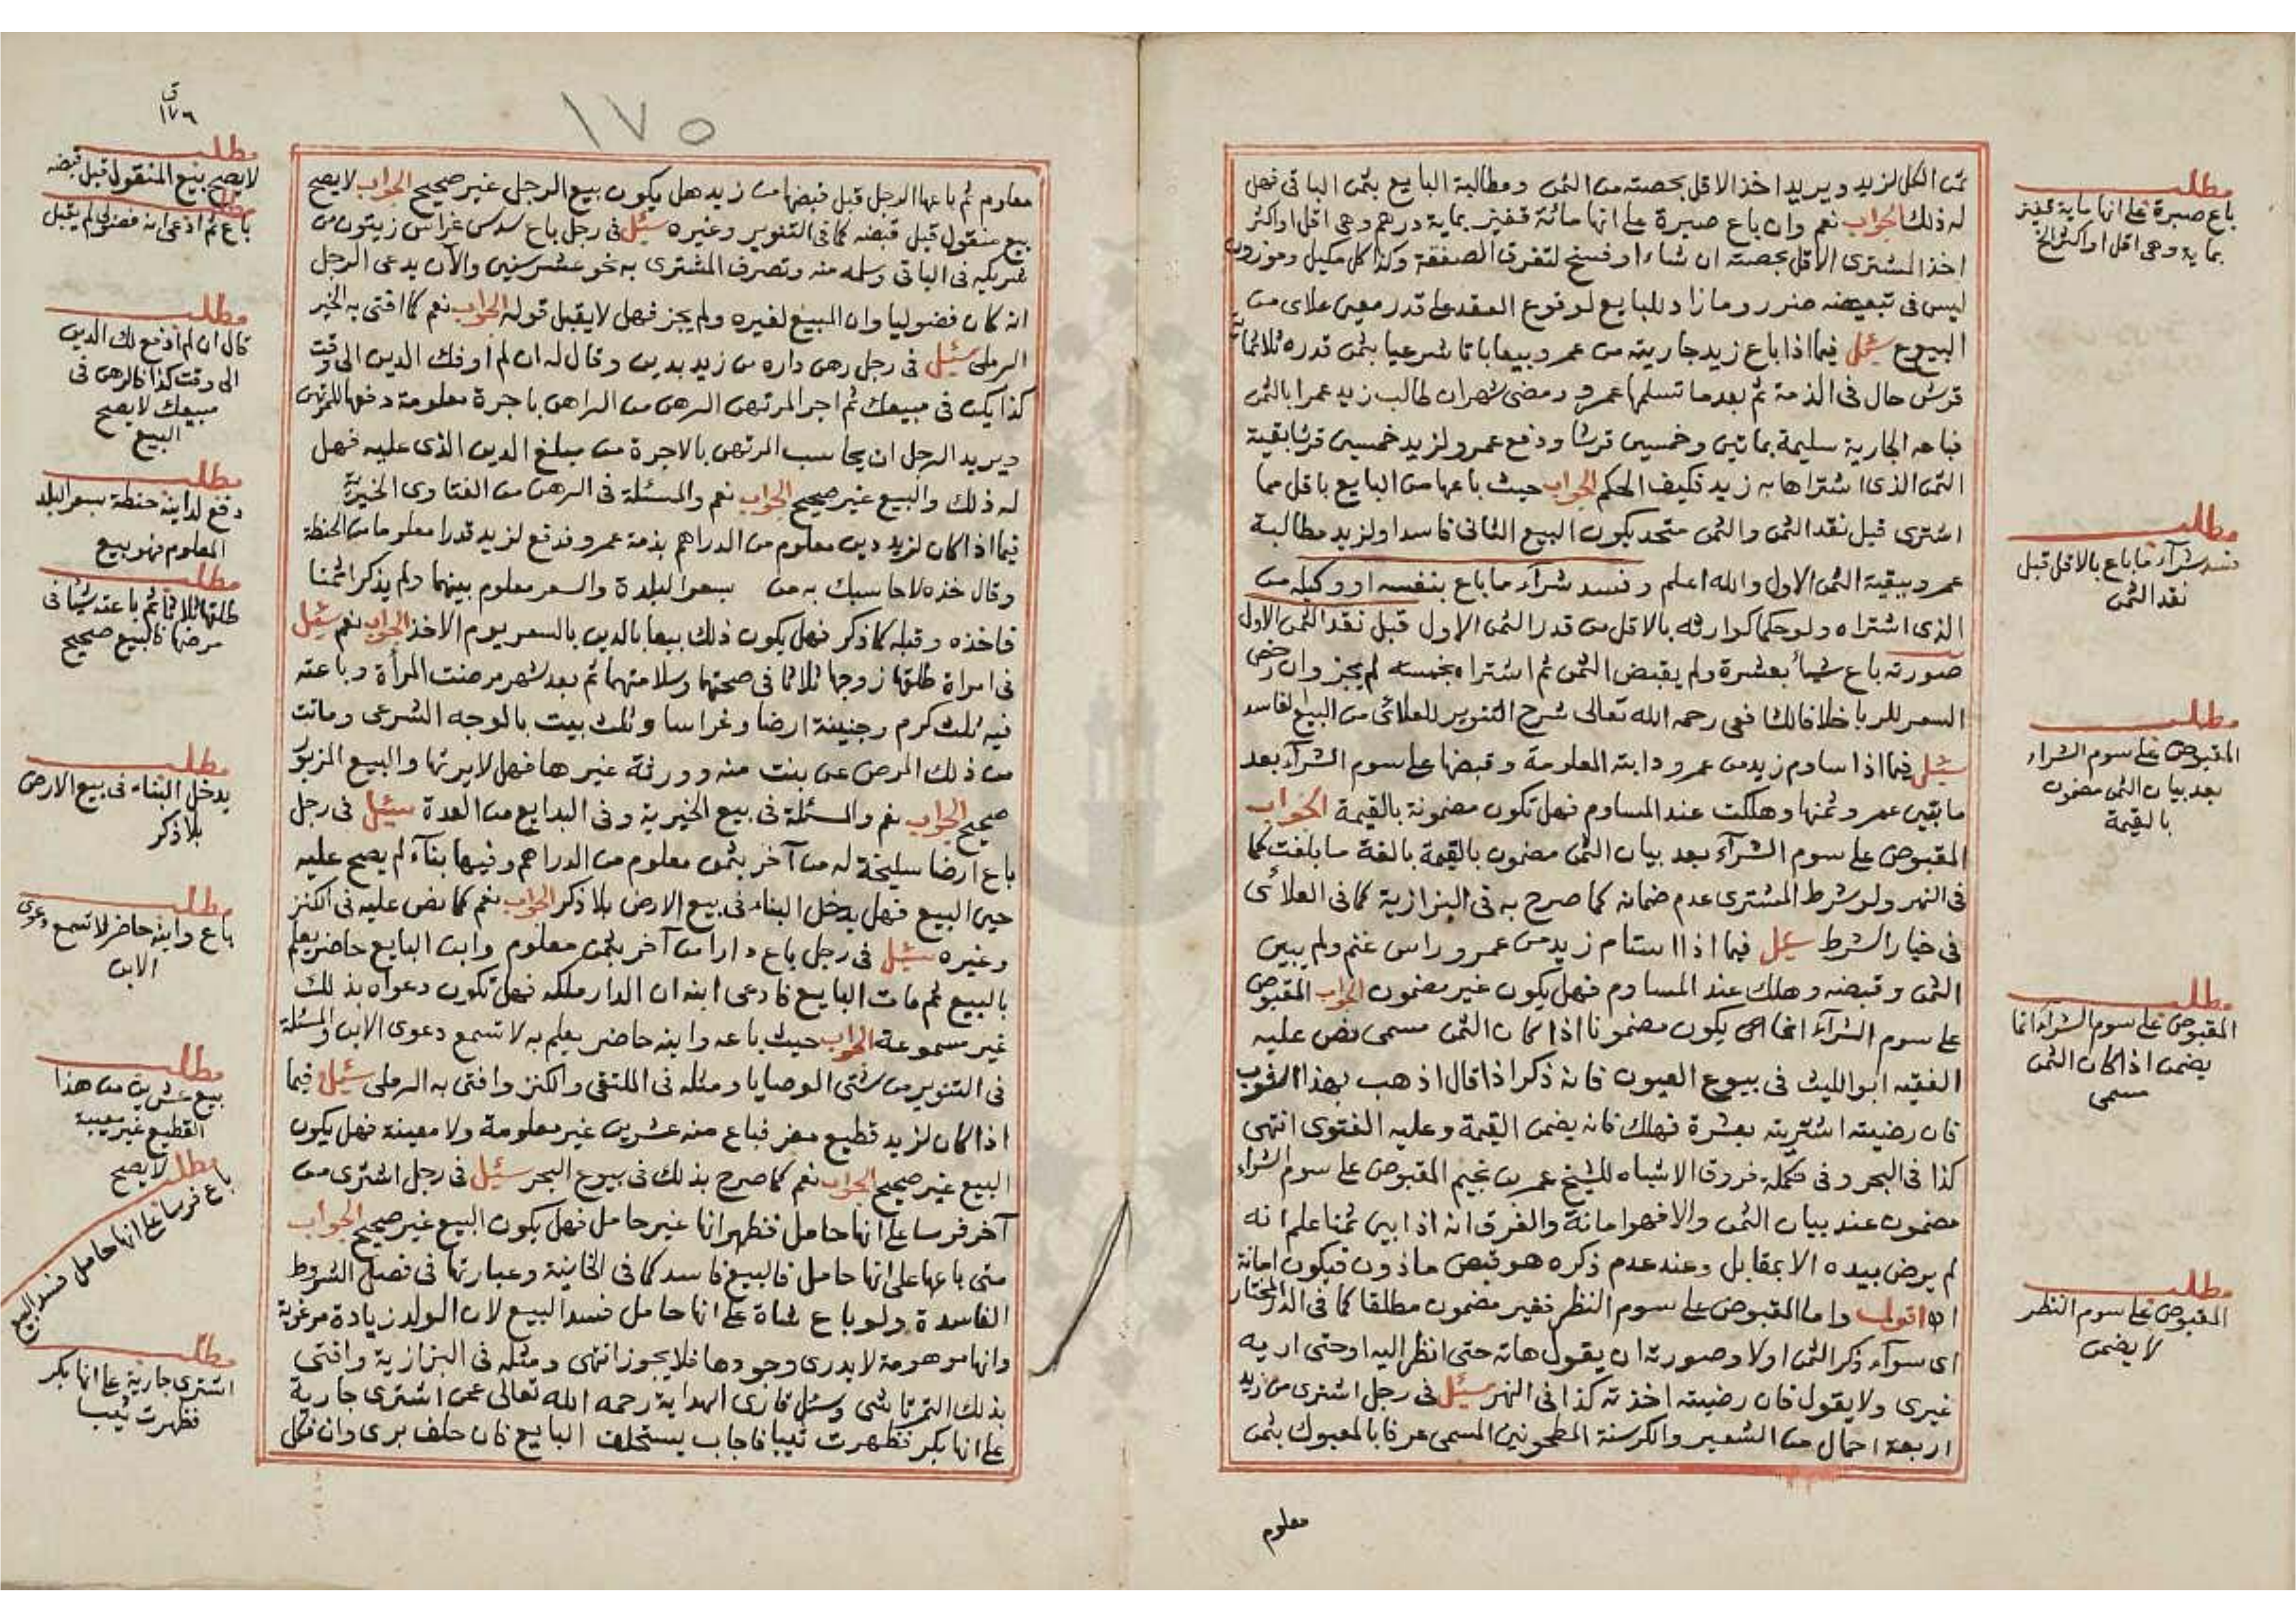 ثمن الكل لزيد ويريد اخذ الاقل بحصته من الثمن ومطالبة البايع بثمن الباقى فهل
له ذلك الجواب نعم وان باع صبرة على انها مائة قفيز بماية درهم وهى اقل او اكثر
اخذ المشترى الاقل بحصته ان شاء او فسخ لتفرق الصفقة وكذا كل مكيل وموزون
ليس فى تبعيضه ضرر ومازاد للبايع لوقوع العقد على قدر معين علاى من
البيوع سئل فيما اذا باع زيد جاريته من عمرو بيعا باتا شرعيا بثمن قدره ثلاثمائة
قرش حال فى الذمة ثم بعدما تسلمها عمرو ومضى شهران طالب زيد عمرا بالثمن
فباعه الجارية سليمة بماتين وخمسين قرشا ودفع عمرو لزيد خمسين قرشا بقية
الثمن الذى اشتراها به زيد فكيف الحكم الجواب حيث باعها من البايع باقل مما
اشترى قبل نقد الثمن والثمن متحد يكون البيع الثانى فاسدا ولزيد مطالبة
عمرو ببقية الثمن الاول والله اعلم وفسد شرآء ماباع بنفسه او وكيله من
الذى اشتراه ولو حكما كوارثه بالاقل من قدر الثمن الاول قبل نقد الثمن الاول
صورته باع شيأ بعشرة ولم يقبض الثمن ثم اشتراه بخمسه لم يجز وان رخص
السعر للربا خلافا للشافعى رحمه الله تعالى شرح التنوير للعلائى من البيع الفاسد
سئل فيما اذا ساوم زيد من عمرو دابته المعلومة وقبضها على سوم الشرآء بعد
مابين عمرو ثمنها وهلكت عند المساوم فهل تكون مضمونة بالقيمة الجواب
المقبوض على سوم الشرآء بعد بيان الثمن مضمون بالقيمة بالغة مابلغت كما
فى النهر ولو شرط المشترى عدم ضمانه كما صرح به فى البزازية كما فى العلائى
فى خيار الشرط سئل فيما اذا استام زيد من عمرو راس غنم ولم يبين
الثمن وقبضه وهلك عند المساوم فهل يكون غير مضمون الجواب المقبوض
على سوم الشرآء انما يكون مضمونا اذا كان الثمن مسمى نص عليه
الفقيه ابو الليث فى بيوع العيون فانه ذكر اذا قال اذهب بهذا الثوب
فان رضيته اشتريته بعشرة فهلك فانه يضمن القيمة وعليه الفتوى انتهى
كذا فى البحر وفى تكملة فروق الاشباه للشيخ عمر بن نجيم المقبوض على سوم الشراء
مضمون عند بيان الثمن والا فهو امانة والفرق انه اذا بين ثمنا علم انه
لم يرض بيده الا بمقابل وعند عدم ذكره هو قبض ماذون فيكون امانة
اه اقول واما المقبوض على سوم النظر فغير مضمون مطلقا كما فى الدر المختار
اى سوآء ذكر الثمن اولا وصورته ان يقول هاته حتى انظر اليه او حتى اريه
غيرى ولا يقول فان رضيته اخذته كذا فى النهر سئل فى رجل اشترى من زيد
اربعة احمال من الشعير والكرسنة المطحونين المسمى عرفا بالمعبوك بثمن
معلوم
مطلب
باع صبرة على انها ماية قفيز
بماية وهى اقل او اكثر الخ
مطلب
فسد شرآء ماباع بالاقل قبل
نقد الثمن
مطلب
المقبوض على سوم الشراء
بعد بيان الثمن مضمون
بالقيمة
مطلب
المقبوض على سوم الشراء انما
يضمن اذا كان الثمن
مسمى
مطلب
المقبوض على سوم النظر
لا يضمن
١٧٥
ق
١٧٦
معلوم ثم باعها الرجل قبل قبضها من زيد هل يكون بيع الرجل غير صحيح الجواب لا يصح
بيع منقول قبل قبضه كما فى التنوير وغيره سئل فى رجل باع سدس غراس زيتون من
شريكه فى الباقى وسلمه منه وتصرف المشترى به نحو عشر سنين والآن يدعى الرجل
انه كان فضوليا وان المبيع لغيره ولم يجز فهل لا يقبل قوله الجواب نعم كما افتى به الخير
الرملى سئل فى رجل رهن داره من زيد بدين وقال له ان لم اوفك الدين الى وقت
كذا يكن فى مبيعك ثم اجر المرتهن الرهن من الراهن باجرة معلومة دفعها للمرتهن
ويريد الرجل ان يحاسب المرتهن بالاجرة من مبلغ الدين الذى عليه فهل
له ذلك والبيع غير صحيح الجواب نعم والمسئلة فى الرهن من الفتاوى الخيرية
فيما اذا كان لزيد دين معلوم من الدراهم بذمة عمرو فدفع لزيد قدرا معلوما من الحنطة
وقال خذه لاحاسبك به من بسعر البلدة والسعر معلوم بينهما ولم يذكر اثمنا
فاخذه وقبله كما ذكر فهل يكون ذلك بيعا بالدين بالسعر يوم الاخذ الجواب نعم سئل
فى امراة طلقها زوجها ثلاثا فى صحتهما وسلامتهما ثم بعد شهر مرضت المرأة وباعته
فيه ثلث كرم وجنينة ارضا وغراسا وثلث بيت بالوجه الشرعى وماتت
من ذلك المرض عن بنت منه وورثة غيرها فهل لا يرثها والبيع المزبور
صحيح الجواب نعم والمسئلة فى بيع الخيرية وفى البدايع من العدة سئل فى رجل
باع ارضا سليخة له من آخر بثمن معلوم من الدراهم وفيها بنآء لم يصح عليه
حين البيع فهل يدخل البناء فى بيع الارض بلا ذكر الجواب نعم كما نص عليه فى الكنز
وغيره سئل فى رجل باع دارا من آخر بثمن معلوم وابن البايع حاضر يعلم
بالبيع ثم مات البايع فادعى ابنه ان الدار ملكه فهل تكون دعواه بذلك
غير مسموعة الجواب حيث باعه وابنه حاضر يعلم به لا تسمع دعوى الابن والمسئلة
فى التنوير من شتى الوصايا ومثله فى الملتقى والكنز وافتى به الرملى سئل فيما
اذا كان لزيد قطيع معز فباع منه عشرين غير معلومة ولا معينة فهل يكون
البيع غير صحيح الجواب نعم كما صرح بذلك فى بيوع البحر سئل فى رجل اشترى من
آخر فرسا على انها حامل فظهر انها غير حامل فهل يكون البيع غير صحيح الجواب
متى باعها على انها حامل فالبيع فاسد كما فى الخانية وعبارتها فى فصل الشروط
الفاسدة ولو باع شاة على انها حامل فسد البيع لان الولد زيادة مرغوبة
وانها موهومة لا يدرى وجودها فلا يجوز انتهى ومثله فى البزازية وافتى
بذلك التمرتاشى وسئل قارى الهداية رحمه الله تعالى عمن اشترى جارية
على انها بكر فظهرت ثيبا فاجاب يستحلف البايع فان حلف برى وان نكل
مطلب
لا يصح بيع المنقول قبل قبضه
مطلب
باع ثم ادعى انه فضولى لم يقبل
مطلب
قال ان لم ادفع لك الدين
الى وقت كذا فالرهن فى
مبيعك لا يصح
البيع
مطلب
دفع لداينه حنطة بسعر البلد
المعلوم فهو بيع
مطلب
طلقها ثلاثا ثم باعته شيئا فى
مرضها فالبيع صحيح
مطلب
يدخل البناء فى بيع الارض
بلا ذكر
مطلب
باع وابنه حاضر لا تسمع دعوى
الابن
مطلب
بيع عشرين من هذا
القطيع غير معينة
لا يصح
مطلب
باع فرسا على انها حامل فسد البيع
مطلب
اشترى جارية على انها بكر
فظهرت ثيبا